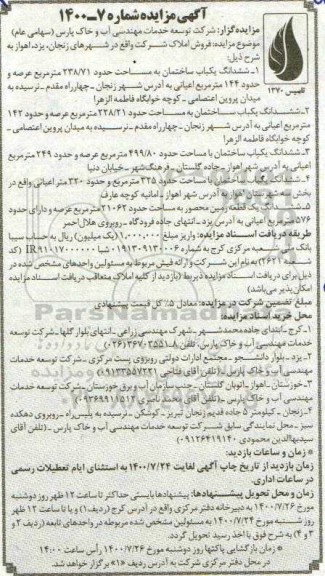 آگهی مزایده شماره ۷_۱۴۰۰
مزایده‌گزار: شرکت توسعه خدمات مهندسی آب و خاک پارس (سهامی عام)
موضوع مزایده: فروش املاک شرکت واقع در شهرهای زنجان، یزد، اهواز به
شرح ذیل:
تاسیس ۱۳۷۰
۱_ ششدانگ یکباب ساختمان به مساحت حدود ۲۳۸/۷۱ مترمربع عرصه و
حدود ۱۴۴ مترمربع اعیانی به آدرس شهر زنجان _ چهارراه مقدم _ نرسیده به
میدان پروین اعتصامی _ کوچه خوابگاه فاطمه الزهرا
۲_ ششدانگ یکباب ساختمان به مساحت حدود ۲۲۸/۲۱ مترمربع عرصه و حدود ۱۴۲
مترمربع اعیانی به آدرس شهر زنجان _ چهارراه مقدم _ نرسیده به میدان پروین اعتصامی _
کوچه خوابگاه فاطمه الزهرا
۳_ ششدانگ یکباب ساختمان با مساحت حدود ۴۹۹/۸۰ مترمربع عرصه و حدود ۲۴۹ مترمربع
اعیانی به آدرس شهر اهواز _ جاده گلستان _ فرهنگ‌شهر _ خیابان دنیا
۴_ ششدانگ مساحت حدود ۳۳۵ مترمربع و حدود ۳۲۰ متر اعیانی واقع در
بخش شهر اهواز _ امانیه کوچه عارف
۵_ ششدانگ قطعه زمین محصور به مساحت حدود ۲۱۰۶۲ مترمربع عرصه و دارای حدود
۵۷۶ مترمربع اعیانی به آدرس یزد _ انتهای جاده فرودگاه _ روبروی هلال احمر
طریقه دریافت اسناد مزایده: واریز مبلغ ۱,۰۰۰,۰۰۰ (یک میلیون) ریال به حساب سیبا
بانک ملی شعبه مرکزی کرج به شماره
شعبه ۲۶۲۱) به نام این شرکت و ارائه فیش مربوط به مسئولین واحدهای مشخص شده در
ذیل برای دریافت اسناد مزایده ذیربط (بازدید از کلیه املاک متعاقب دریافت اسناد مزایده
امکان پذیر می‌باشد)
مبلغ تضمین شرکت در مزایده: معادل ۵٪ کل قیمت پیشنهادی
محل خرید اسناد مزایده:
۱_ کرج _ ابتدای جاده محمدشهر _ شهرک مهندسی زراعی _ انتهای بلوار گلها _ شرکت توسعه
خدمات مهندسی آب و خاک پارس، تلفن
۲_ یزد _ بلوار دانشجو _ مجتمع ادارات دولتی روبروی پست مرکزی _ شرکت توسعه خدمات
مهندسی آب و خاک پارس _ (تلفن آقای فتاحی ۰۹۱۳۳۵۵۷۲۲۱)
۳_ خوزستان _ اهواز _ اتوبان گلستان _ جنب سازمان آب و برق خوزستان _ شرکت توسعه خدمات
مهندسی آب و خاک پارس _ (تلفن آقای نامداری ۰۹۳۶۹۹۱۱۵۱۲)
۴_ زنجان _ کیلومتر ۵ جاده قدیم زنجان تبریز _ کوشکن _ نرسیده به پلیس راه _ روبروی دهکده
سبز _ محل نمایندگی سابق شرکت توسعه خدمات مهندسی آب و خاک پارس _ (تلفن آقای
سیدبهاالدین محمودی ۰۹۱۲۶۴۱۹۱۴۰)
* زمان و ساعات بازدید:
زمان بازدید از تاریخ چاپ آگهی لغایت ۱۴۰۰/۷/۲۴ به استثنای ایام تعطیلات رسمی
در ساعات اداری.
* زمان و محل تحویل پیشنهادها: پیشنهادها بایستی حداکثر تا ساعت ۱۲ ظهر روز دوشنبه
مورخ ۱۴۰۰/۷/۲۶ به دبیرخانه دفتر مرکزی واقع در آدرس کرج (ردیف ۱) و یا تا ساعت ۱۲ ظهر
روز شنبه مورخ ۱۴۰۰/۷/۲۴ به مسئولین مشخص شده مربوطه در واحدهای تابعه (ردیف ۲ و
۳ و ۴) به شرح فوق با اخذ رسید تحویل گردد.
* زمان بازگشایی پاکتها روز دوشنبه مورخ ۱۴۰۰/۷/۲۶ راس ساعت ۱۴:۰۰
در محل دفتر مرکزی شرکت به آدرس ردیف «۱» برگزار خواهد شد.